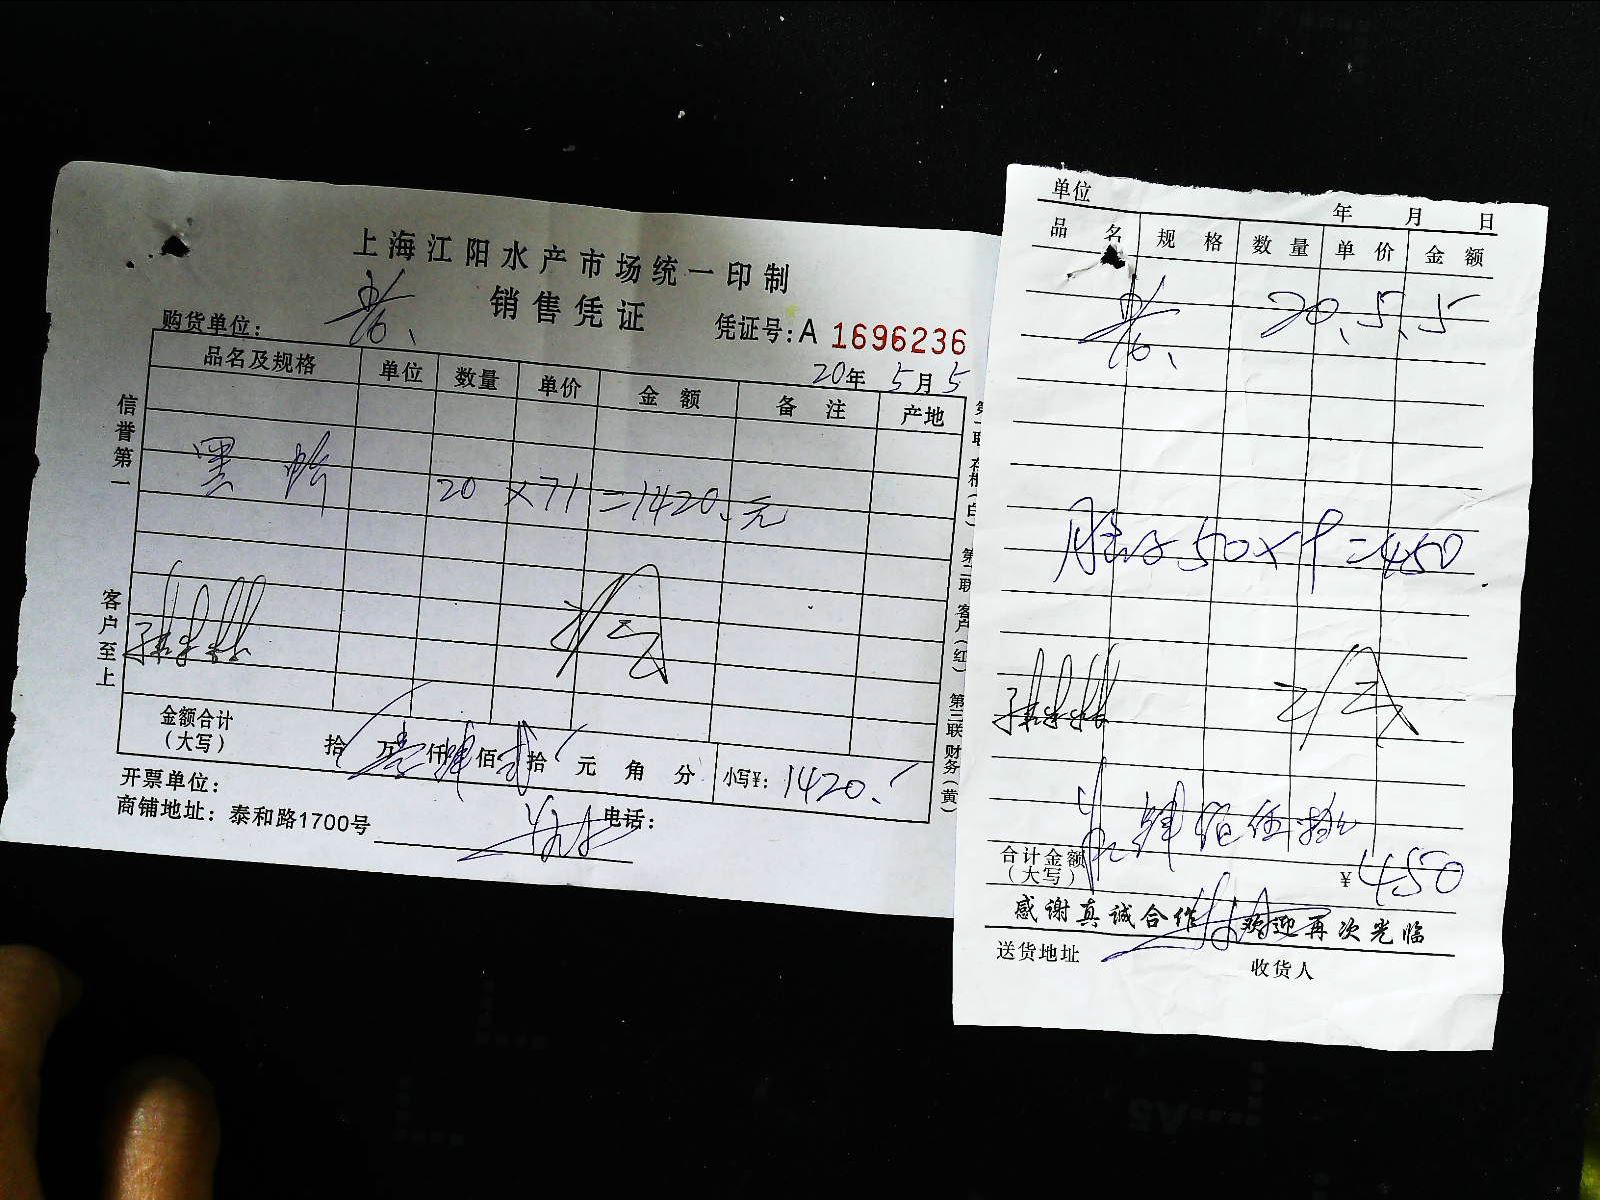 上海江阳水产市场统一印制
销售凭证
购货单位:
凭证号:A 1696236
20年 5月5
品名及规格 单位 数量 单价 金额 备注 产地
信誉第一
客户至上
黑 20×71=1420.元
金额合计(大写) 拾万壹仟肆佰贰拾元角分 小写¥: 1420.
开票单位:
商铺地址: 泰和路1700号 电话:
第二联 客户(红)
第三联 财务(黄)
单位 年 月 日
品名 规格 数量 单价 金额
20.5.5
50×9=450
肆佰伍拾元
合计金额(大写) ¥450
感谢真诚合作 欢迎再次光临
送货地址 收货人